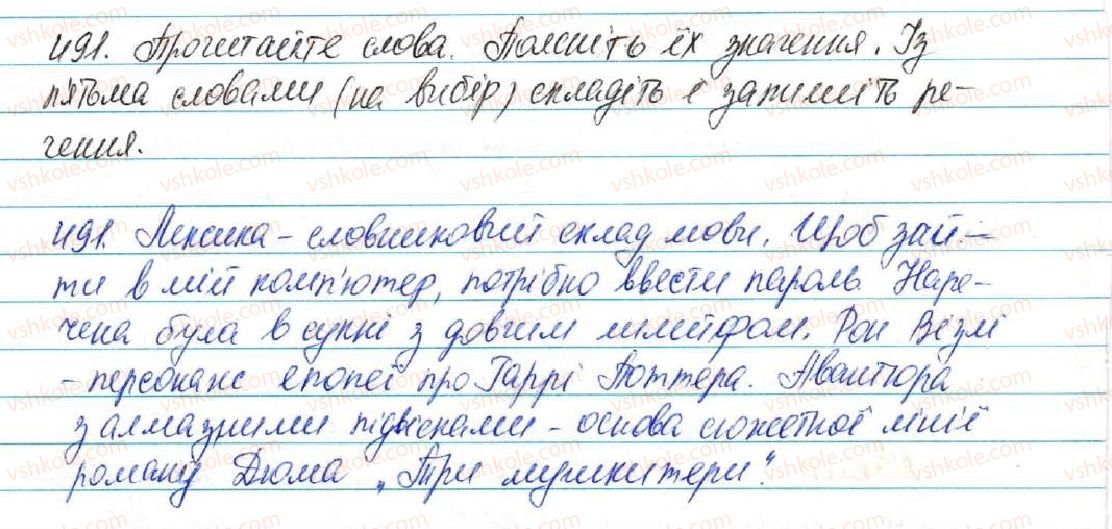 491. Прочитайте слова. Поясніть їх значення. Із
п'ятьма словами (на вибір) складіть і запишіть ре-
чення.
491. Лексика - словниковий склад мови. Щоб зай-
ти в мій комп'ютер, потрібно ввести пароль. Наре-
чена була в сукні з довгим шлейфом. Рон Візлі
- персонаж епопеї про Гаррі Поттера. Авантюра
з алмазними підвісками - основа сюжетної лінії
роману Дюма „Три мушкетери".